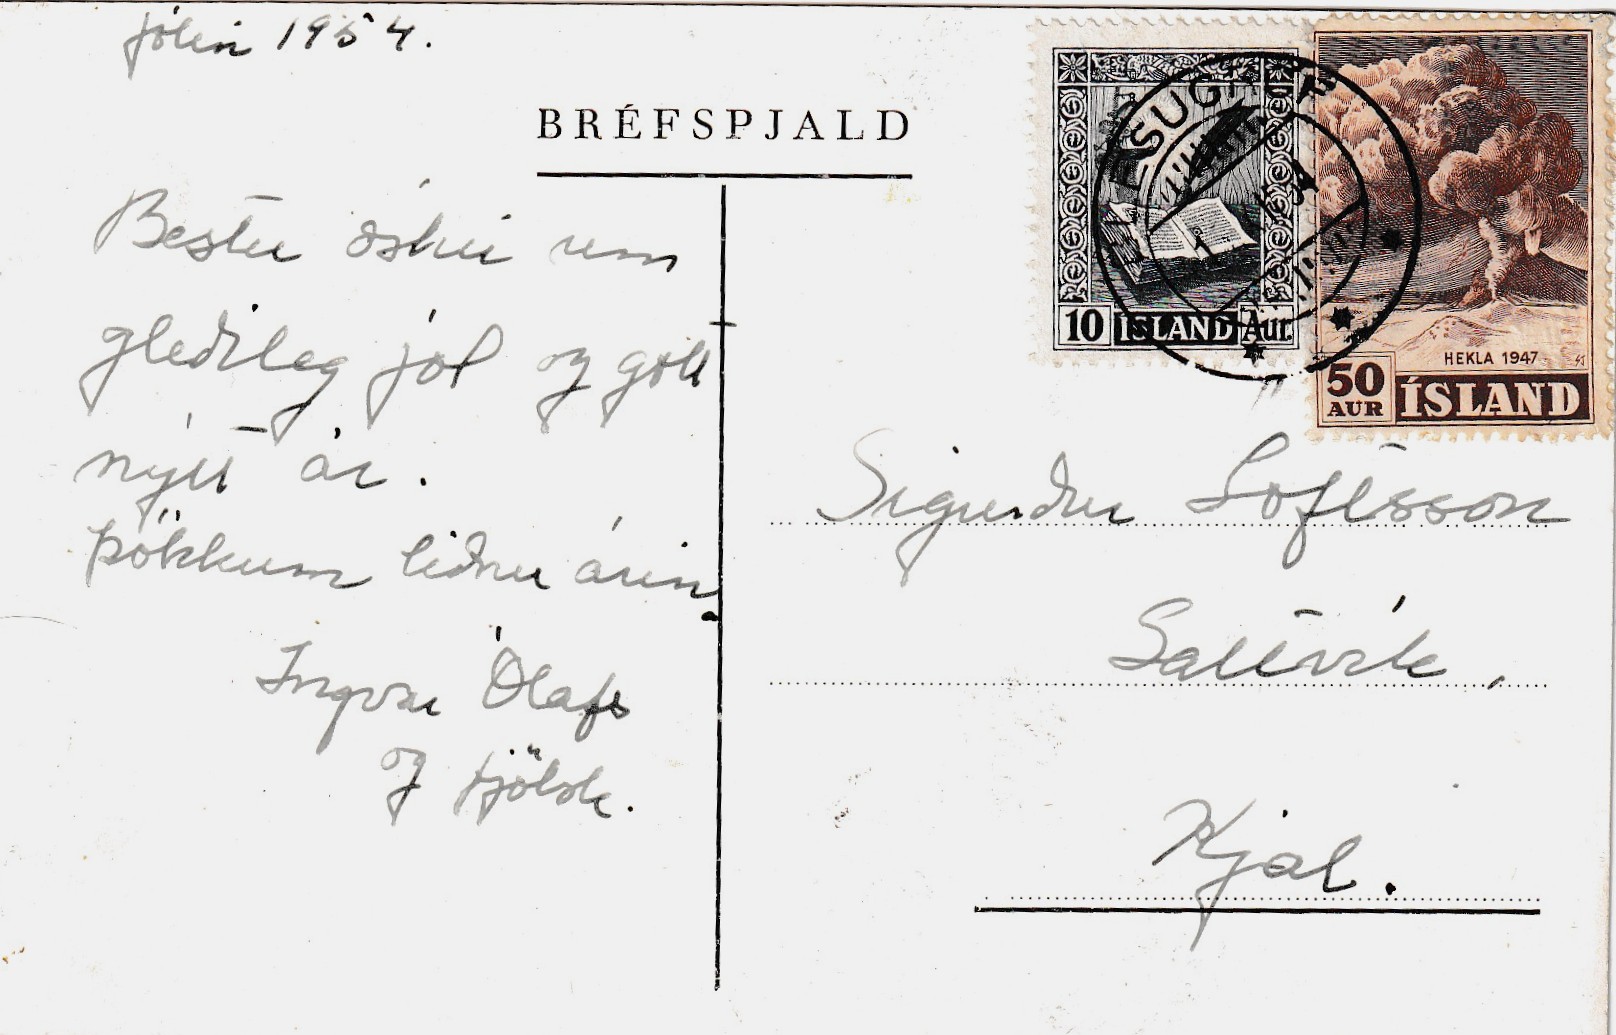 Jólin 1954.
BRÉFSPJALD
Bestu óskir um
gleðileg jól og gott
nýtt ár.
Þökkum liðnu árin.
Ingvar Ólafs
og fjölsk.
10 ÍSLAND Aur.
HEKLA 1947
50
AUR ÍSLAND
Sigurður Loftsson
Saltvík,
Kjal.